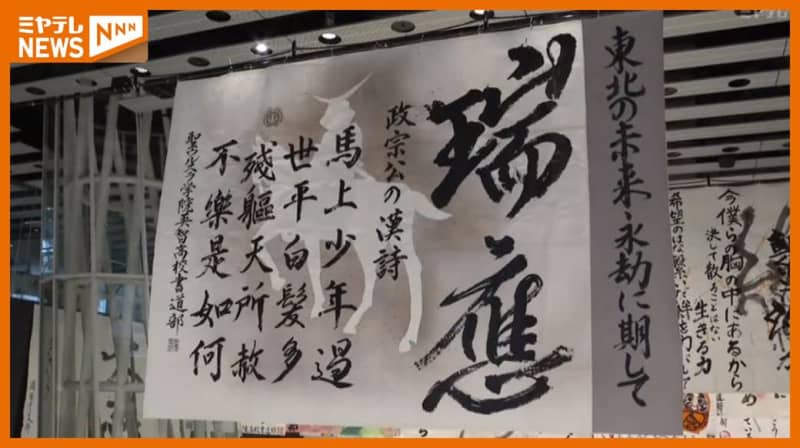 ミヤテレ
NEWS NNN
東北の未来、永劫に期して
瑞應
政宗公の漢詩
馬上少年過
世平白髪多
残軀天所赦
不樂是如何
聖ウルスラ学院英智高校書道部
今僕らの胸の中にあるから
決して散ることはない
生きる力